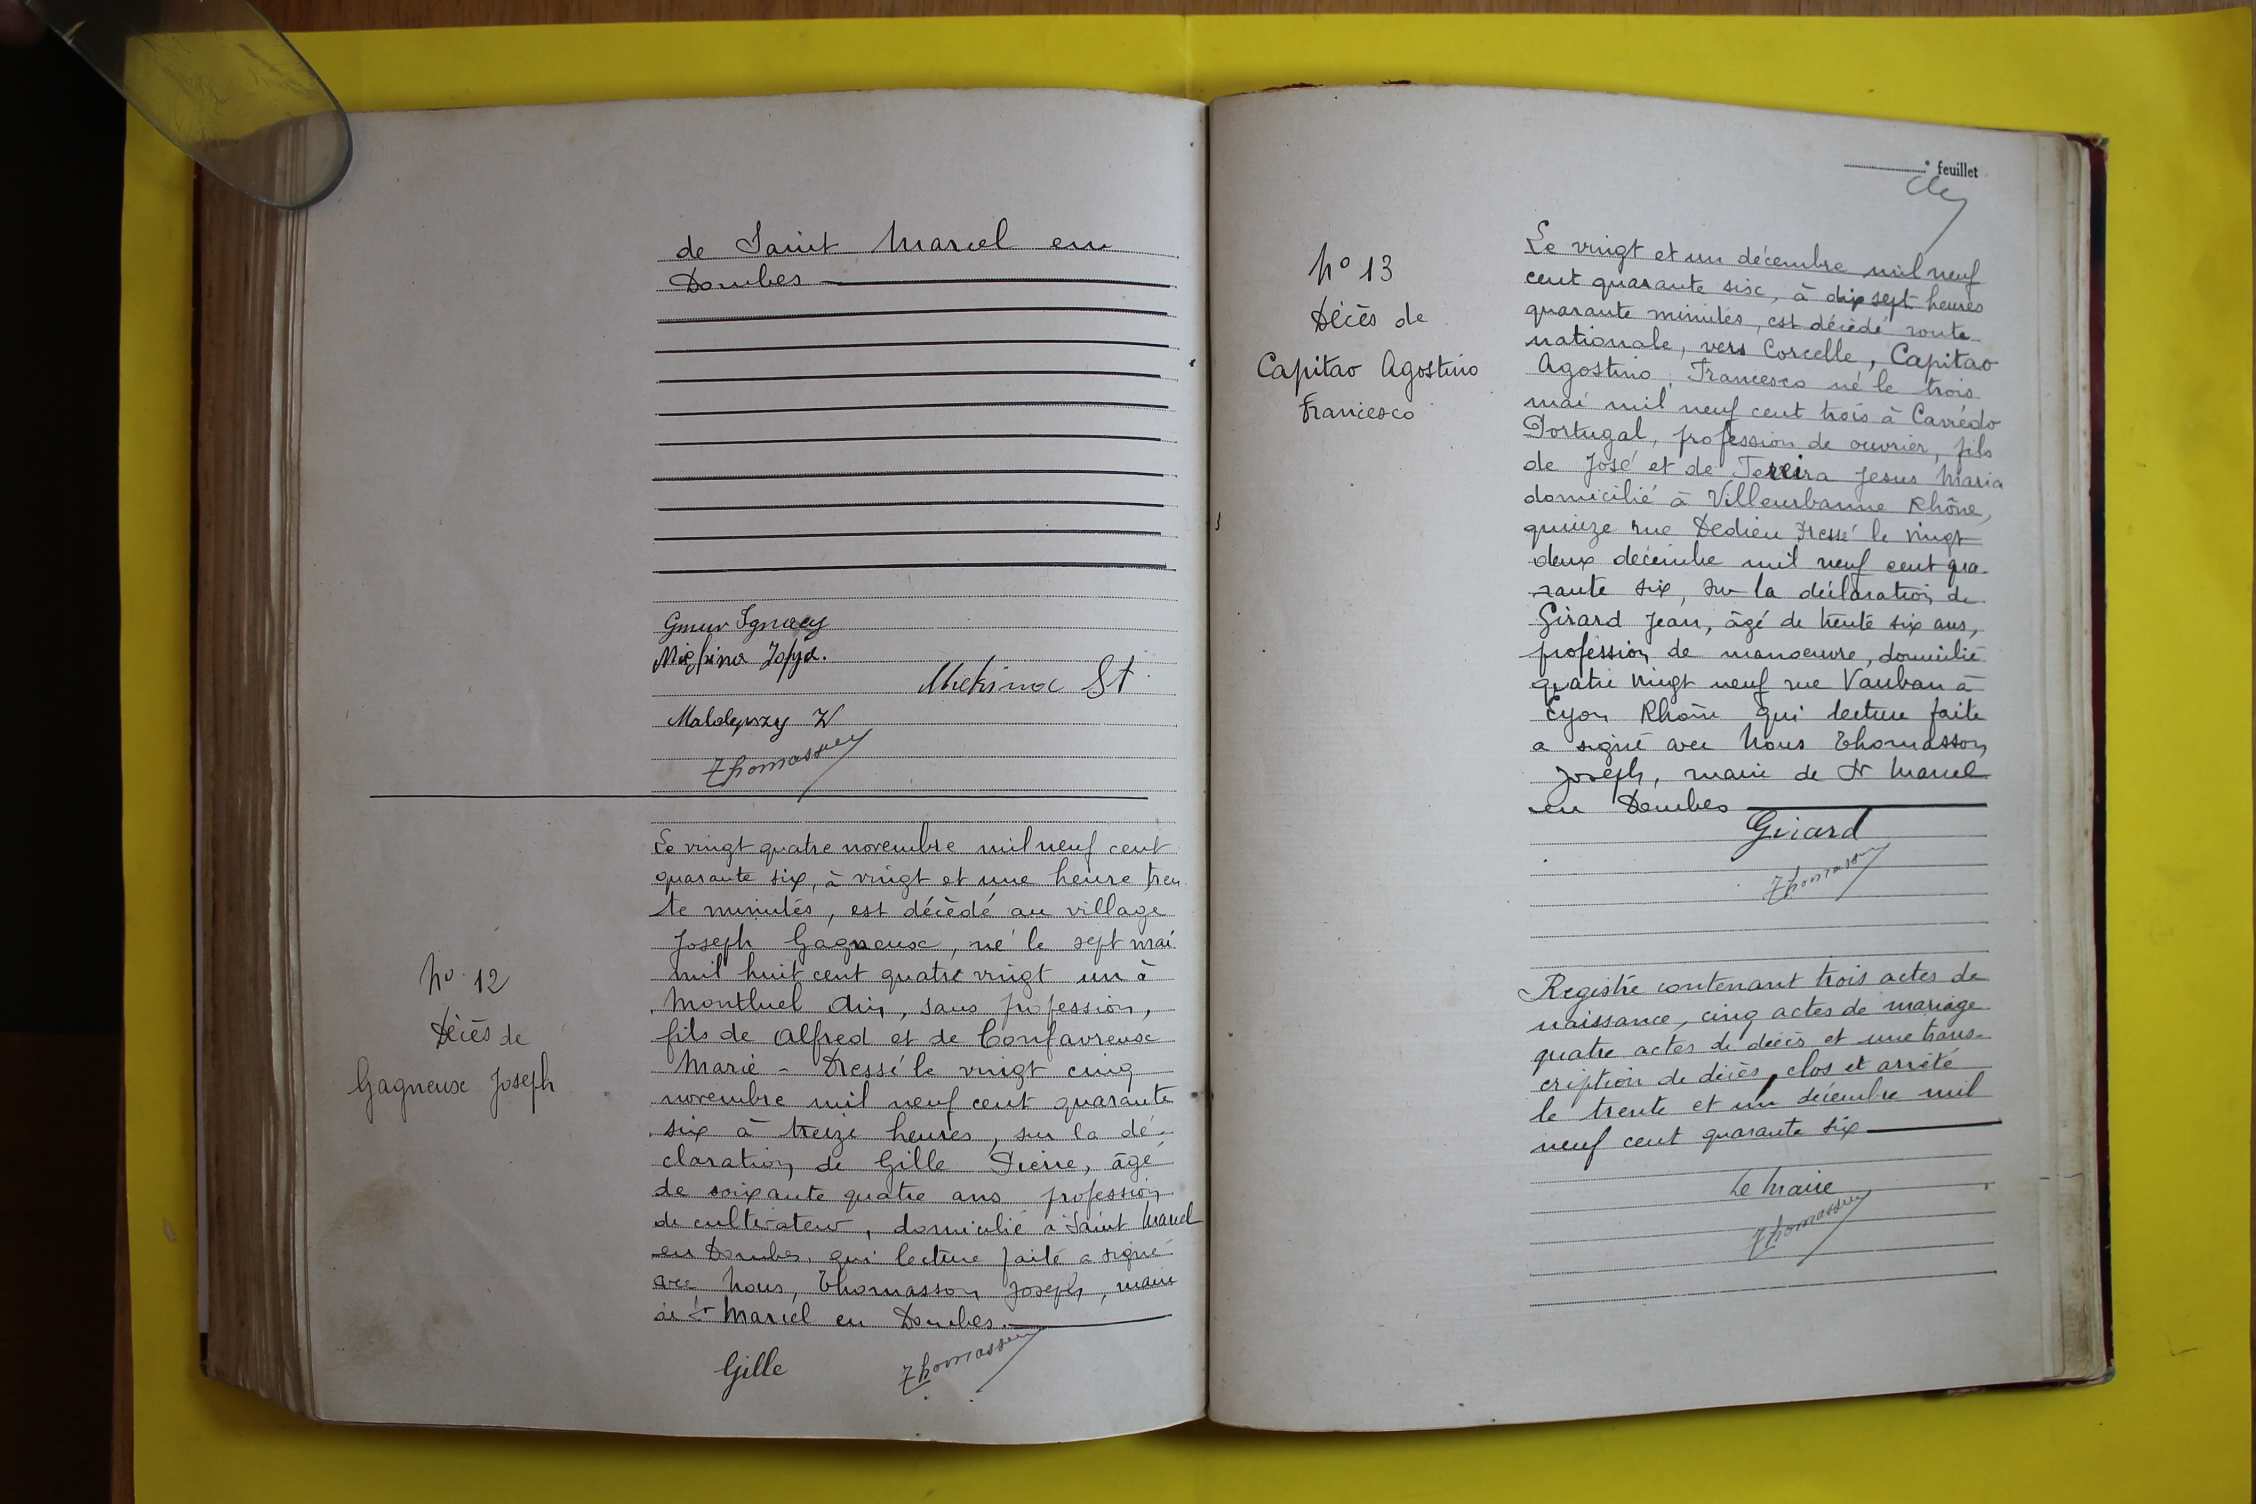 de Saint Marcel en
Dombes
Gmur Ignacy
Miekina Zofja.
Miekina St
Malolepszy W
Thomasson
Le vingt quatre novembre mil neuf cent
quarante six, à vingt et une heure tren
te minutes, est décèdé au village
Joseph Gagneux, né le sept mai
mil huit cent quatre vingt un à
Montluel Ain, sans profession,
fils de Alfred et de Confavreux
Marie - Dressé le vingt cinq
novembre mil neuf cent quarante
six à treize heures, sur la dé-
claration de Gille Pierre, âgé
de soixante quatre ans profession
de cultivateur, domicilié à Saint Marcel
en Dombes, qui lecture faite a signé
avec Nous, Thomasson Joseph, maire
de St Marcel en Dombes.
Gille Thomasson
No 12
Décès de
Gagneux Joseph
feuillet
No 13
Décès de
Capitao Agostino
Francesco
Le vingt et un décembre mil neuf
cent quarante six, à dix sept heures
quarante minutes, est décèdé route
nationale, vers Corcelle, Capitao
Agostino, Francesco né le trois
mai mil neuf cent trois à Cavrédo
Portugal, profession de ouvrier, fils
de José et de Jesus Maria
domicilié à Villeurbanne Rhône,
quinze rue Dedieu Dressé le vingt
deux décembre mil neuf cent qua-
rante six, sur la déclaration de
Girard Jean, âgé de trente six ans,
profession de manoeuvre, domicilié
quatre vingt neuf rue Vauban à
Lyon Rhône qui lecture faite
a signé avec Nous Thomasson
Joseph, maire de St Marcel
en Dombes
Girard
Thomasson
Registre contenant trois actes de
naissance, cinq actes de mariage
quatre actes de décès et une trans-
cription de décès, clos et arrêté
le trente et un décembre mil
neuf cent quarante six
Le Maire
Thomasson